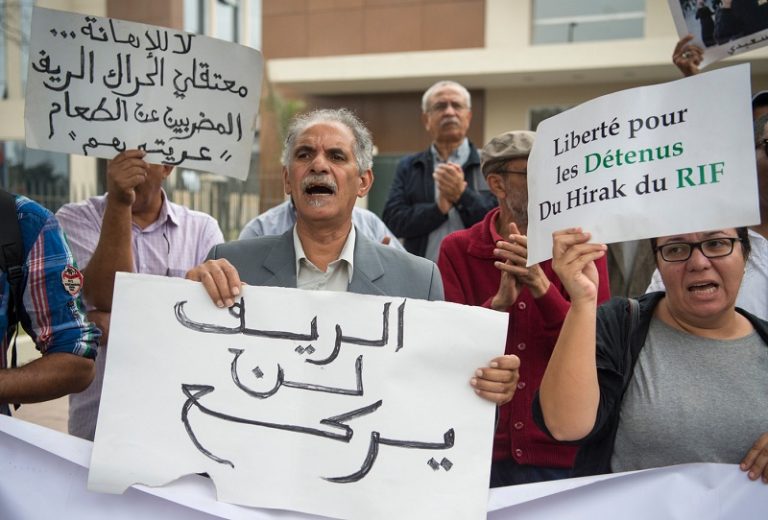 لا للإهانة...
معتقلي الحراك الريف
المضربين عن الطعام
"عريتيهم"
الريف
لن
يركع
Liberté pour
les Détenus
Du Hirak du RIF